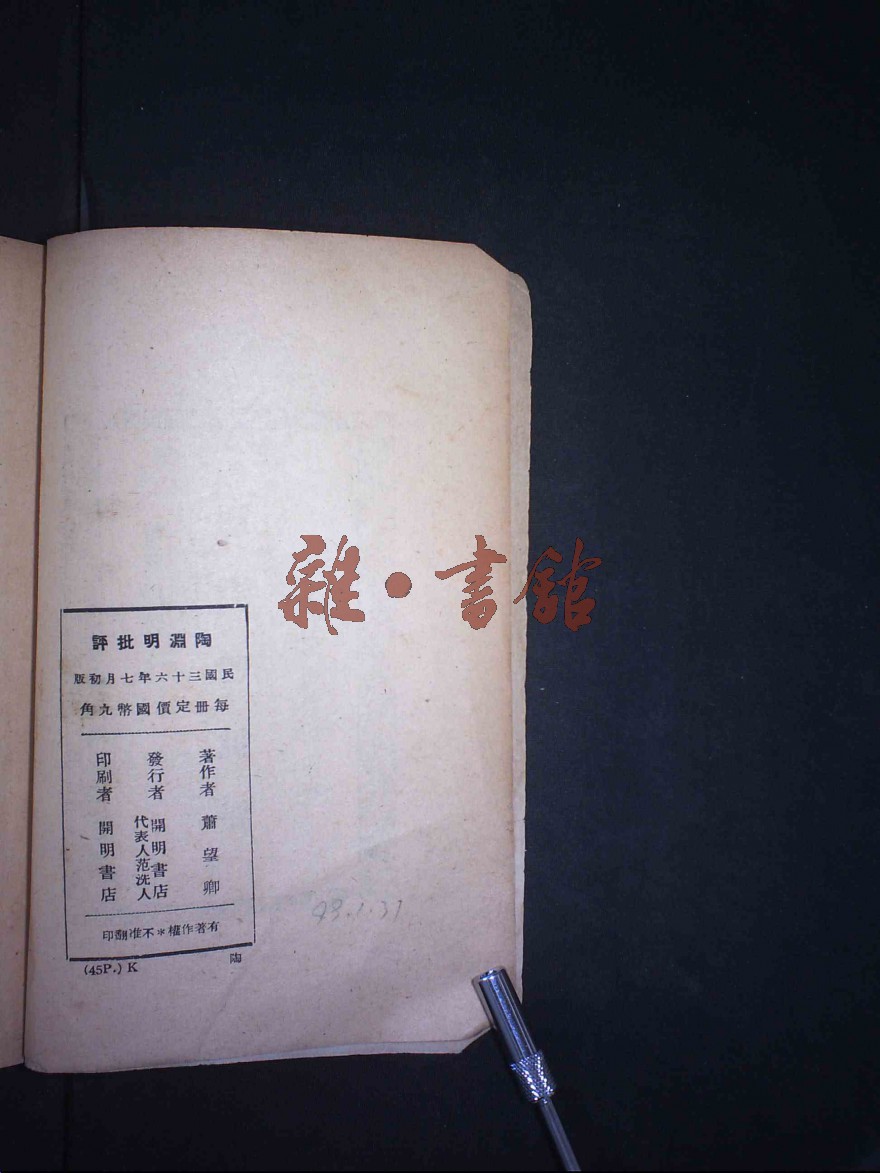 雜·書舘
陶淵明批評
民國三十六年七月初版
每冊定價國幣九角
著作者 蕭望卿
發行者 開明書店
代表人范洗人
印刷者 開明書店
有著作權＊不准翻印
(45P.) K
陶
48.1.31